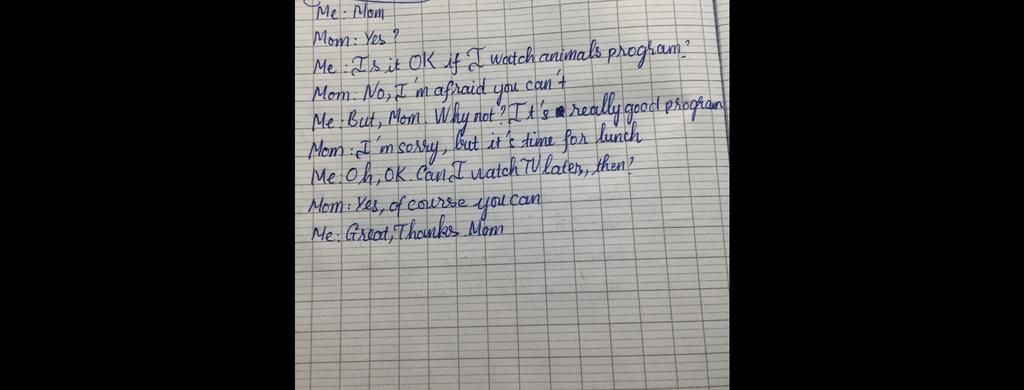 Me: Mom
Mom: Yes?
Me: Is it OK if I watch animals program?
Mom: No, I'm afraid you can't
Me: But, Mom. Why not? It's really good program
Mom: I'm sorry, but it's time for lunch
Me: Oh, OK. Can I watch TV later, then?
Mom: Yes, of course you can
Me: Great, Thanks Mom